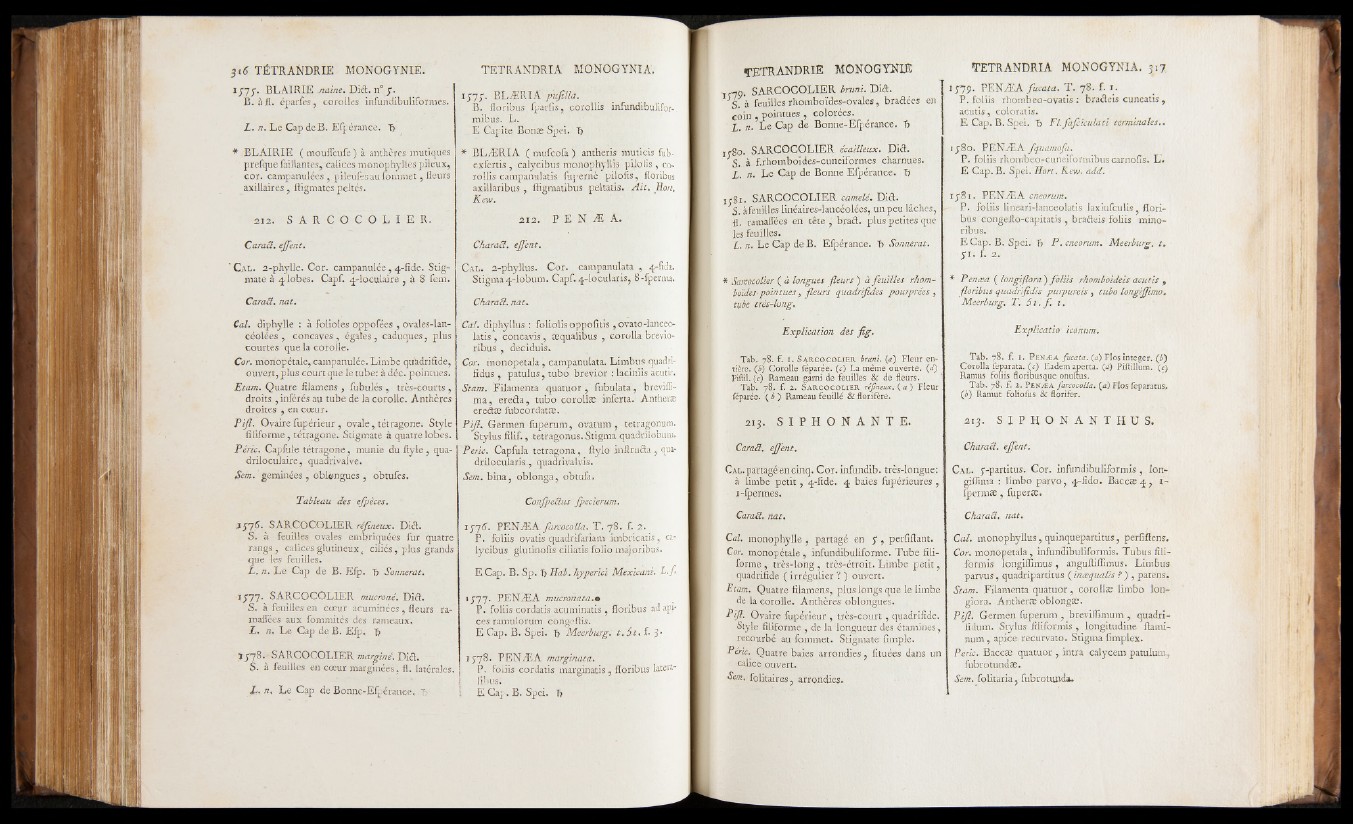 316 TÉTRANDRIE MONOGYNIE.
1575. BLAIRIE naine. Dict. n° 5.
B. à fl. éparſes, corolles infundibuliformes.
L. n. Le Cap de B. Eſpérance. ♄
* BLAIRIE (mouſſeuſe) à anthères mutiques
preſque ſaillantes, calices monophylles pileux,
cor. campanulées, pileuſes au ſommet, fleurs
axillaires, ſtigmates peltés.
212. SARCOCOLIER.
Caract. eſſent.
CAL. 2-phylle. Cor. campanulée, 4-fide. Stig-
mate à 4 lobes. Capſ. 4-loculaire, à 8 ſem.
Caract. nat.
Cal. diphylle : à folioles oppoſées, ovales-lan-
céolées, concaves, égales, caduques, plus
courtes que la corolle.
Cor. monopétale, campanulée. Limbe quadrifide,
ouvert, plus court que le tube: à déc. pointues.
Etam. Quatre filamens, ſubulés, très-courts,
droits, inſérés au tube de la corolle. Anthères
droites, en cœur.
Piſt. Ovaire ſupérieur, ovale, tétragone. Style
filiforme, tétragone. Stigmate à quatre lobes.
Péric. Capſule tétragone, munie du ſtyle, qua-
driloculaire, quadrivalve.
Sem. geminées, oblongues, obtuſes.
Tableau des eſpèces.
1576. SARCOCOLIER réſineux. Dict.
S. à feuilles ovales embriquées ſur quatre
rangs, calices glutineux, ciliés, plus grands
que les feuilles.
L. n. Le Cap de B. Eſp. ♄ Sonnerat.
1577. SARCOCOLIER mucroné. Dict.
S. à feuilles en cœur acuminées, fleurs ra-
maſſées aux ſommités des rameaux.
L. n. Le Cap de B. Eſp. ♄
1578. SARCOCOLIER marginé. Dict.
S. à feuilles en cœur marginées, fl. latérales.
L. n. Le Cap de Bonne-Eſpérance. ♄
TETRANDRIA MONOGYNIA.
1575. BLÆRIA puſilla.
B. floribus ſparſis, corollis infundibulifor-
mibus. L.
E Capite Bonæ Spei. ♄
* BLÆRIA (muſcoſa) antheris muticis ſub-
exſertis, calycibus monophyllis piloſis, co-
rollis campanulatis ſupernè piloſis, floribus
axillaribus, ſtigmatibus peltatis. Ait. Hort.
Kew.
212. PENÆA.
Charact. eſſent.
CAL. 2-phyllus. Cor. campanulata, 4-fida.
Stigma 4-lobum. Capſ. 4-locularis, 8-ſperma.
Charact. nat.
Cal. diphyllus : foliolis oppoſitis, ovato-lanceo-
latis, concavis, æqualibus, corolla brevio-
ribus, deciduis.
Cor. monopetala, campanulata. Limbus quadri-
fidus, patulus, tubo brevior : laciniis acutis.
Stam. Filamenta quatuor, ſubulata, breviſſi-
ma, erecta, tubo corollæ inſerta. Antheræ
erectæ ſubcordatæ.
Piſt. Germen ſuperum, ovatum, tetragonum.
Stylus filif., tetragonus. Stigma quadrilobum.
Peric. Capſula tetragona, ſtylo inſtructa, qua-
drilocularis, quadrivalvis.
Sem. bina, oblonga, obtuſa.
Conſpectus ſpecierum.
1576. PENÆA ſarcocolla. T. 78. f. 2.
P. foliis ovatis quadrifariam imbricatis, ca-
lycibus glutinoſis ciliatis folio majoribus.
E Cap. B. Sp. ♄ Hab. hyperici Mexicani. L. f.
1577. PENÆA mucronata.
P. foliis cordatis acuminatis, floribus ad api-
ces ramulorum congeſtis.
E Cap. B. Spei. ♄ Meerburg. t. 51. f. 3.
1578. PENÆA marginata.
P. foliis cordatis marginatis, floribus latera-
libus.
E Cap. B. Spei. ♄
TETRANDRIE MONOGYNIE
1579. SARCOCOLIER bruni. Dict.
S. à feuilles rhomboïdes-ovales, bractées en
coin, pointues, colorées.
L. n. Le Cap de Bonne-Eſpérance. ♄
1580. SARCOCOLIER écailleux. Dict.
S. à f. rhomboïdes-cunéiformes charnues.
L. n. Le Cap de Bonne Eſpérance. ♄
1581. SARCOCOLIER camelé. Dict.
S. à feuilles linéaires-lancéolées, un peu lâches,
fl. ramaſſées en tête, bract. plus petites que
les feuilles.
L. n. Le Cap de B. Eſpérance. ♄ Sonnerat.
* Sarcocolier (à longues fleurs) à feuilles rhom-
boïdes pointues, fleurs quadrifides pourprées,
tube très-long.
Explication des fig.
Tab. 78. f. 1. SARCOCOLIER bruni. (a) Fleur en-
tière. (b) Corolle ſéparée. (c) La même ouverte. (d)
Piſtil. (e) Rameau garni de feuilles & de fleurs.
Tab. 78. f. 2. SARCOCOLIER réſineux. (a) Fleur
ſéparée. (b) Rameau feuillé & florifère.
213. SIPHONANTE.
Caract. eſſent.
CAL. partagé en cinq. Cor. infundib. très-longue:
à limbe petit, 4-fide. 4 baies ſupérieures,
1-ſpermes.
Caract. nat.
Cal. monophylle, partagé en 5, perſiſtant.
Cor. monopétale, infundibuliforme. Tube fili-
forme, très-long, très-étroit. Limbe petit,
quadrifide (irrégulier ?) ouvert.
Etam. Quatre filamens, plus longs que le limbe
de la corolle. Anthères oblongues.
Piſt. Ovaire ſupérieur, très-court, quadrifide.
Style filiforme, de la longueur des étamines,
recourbé au ſommet. Stigmate ſimple.
Péric. Quatre baies arrondies, ſituées dans un
calice ouvert.
Sem. ſolitaires, arrondies.
TETRANDRIA MONOGYNIA. 317
1579. PENÆA fucata. T. 78. f. 1.
P. foliis rhombeo-ovatis : bracteis cuneatis,
acutis, coloratis.
E Cap. B. Spei. ♄ Fl. faſciculati terminales..
1580. PENÆA ſquamoſa.
P. foliis rhombeo-cuneiformibus carnoſis. L.
E Cap. B. Spei. Hort. Kew. add.
1581. PENÆA cneorum.
P. foliis lineari-lanceolatis laxiuſculis, flori-
bus congeſto-capitatis, bracteis foliis mino-
ribus.
E Cap. B. Spei. ♄ P. cneorum. Meerburg. t.
51. f. 2.
* Penæa (longiflora) foliis rhomboideis acutis,
floribus quadrifidis purpureis, tubo longiſſimo.
Meerburg. T. 51. f. 1.
Explicatio iconum.
Tab. 78. f. 1. PENÆA fucata. (a) Flos integer. (b)
Corolla ſeparata. (c) Eadem aperta. (d) Piſtillum. (e)
Ramus foliis floribusque onuſtus.
Tab. 78. f. 2. PENÆA ſarcocolla. (a) Flos ſeparatus.
(b) Ramus folioſus & florifer.
213. SIPHONANTHUS.
Charact. eſſent.
CAL. 5-partitus. Cor. infundibuliformis, lon-
giſſima : limbo parvo, 4-fido. Baccæ 4, 1-
ſpermæ, ſuperæ.
Charact. nat.
Cal. monophyllus, quinquepartitus, perſiſtens.
Cor. monopetala, infundibuliformis. Tubus fili-
formis longiſſimus, anguſtiſſimus. Limbus
parvus, quadripartitus (inæqualis ?), patens.
Stam. Filamenta quatuor, corollæ limbo lon-
giora. Antheræ oblongæ.
Piſt. Germen ſuperum, breviſſimum, quadri-
fidum. Stylus filiformis, longitudine ſtami-
num, apice recurvato. Stigma ſimplex.
Peric. Baccæ quatuor, intra calycem patulum,
ſubrotundæ.
Sem. ſolitaria, ſubrotunda.